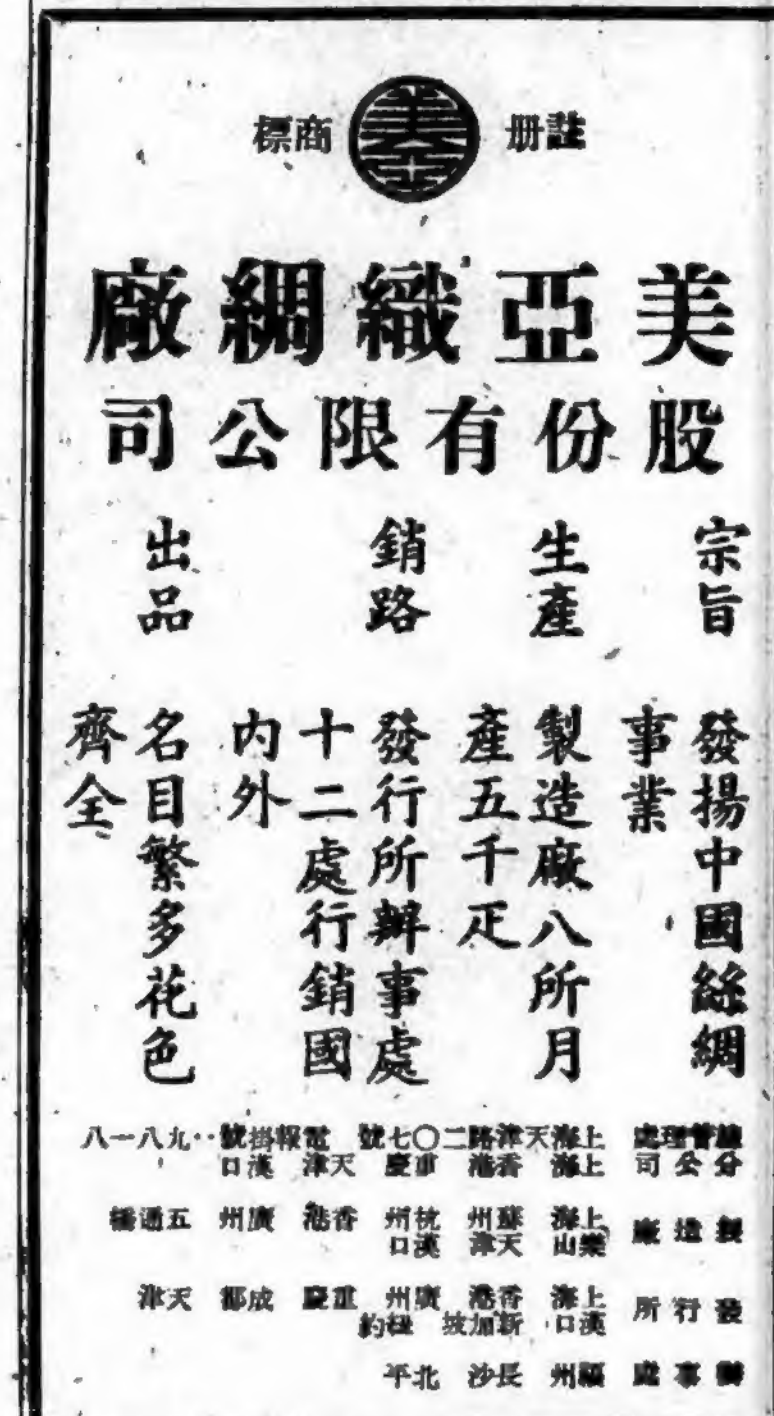 註册 美亞 商標
美亞織綢廠
股份有限公司
宗旨 發揚中國絲綢
事業
生產 製造廠八所月
產五千疋
銷路 發行所辦事處
十二處行銷國
內外
出品 名目繁多花色
齊全
總管理處 上海天津路二〇七號 電報掛號··九八一八
分公司 上海 香港 重慶 天津 漢口
製造廠 上海 蘇州 杭州 香港 廣州 五通橋
樂山 天津 漢口
發行所 上海 香港 廣州 重慶 成都 天津
漢口 新加坡 紐約
辦事處 長沙 北平